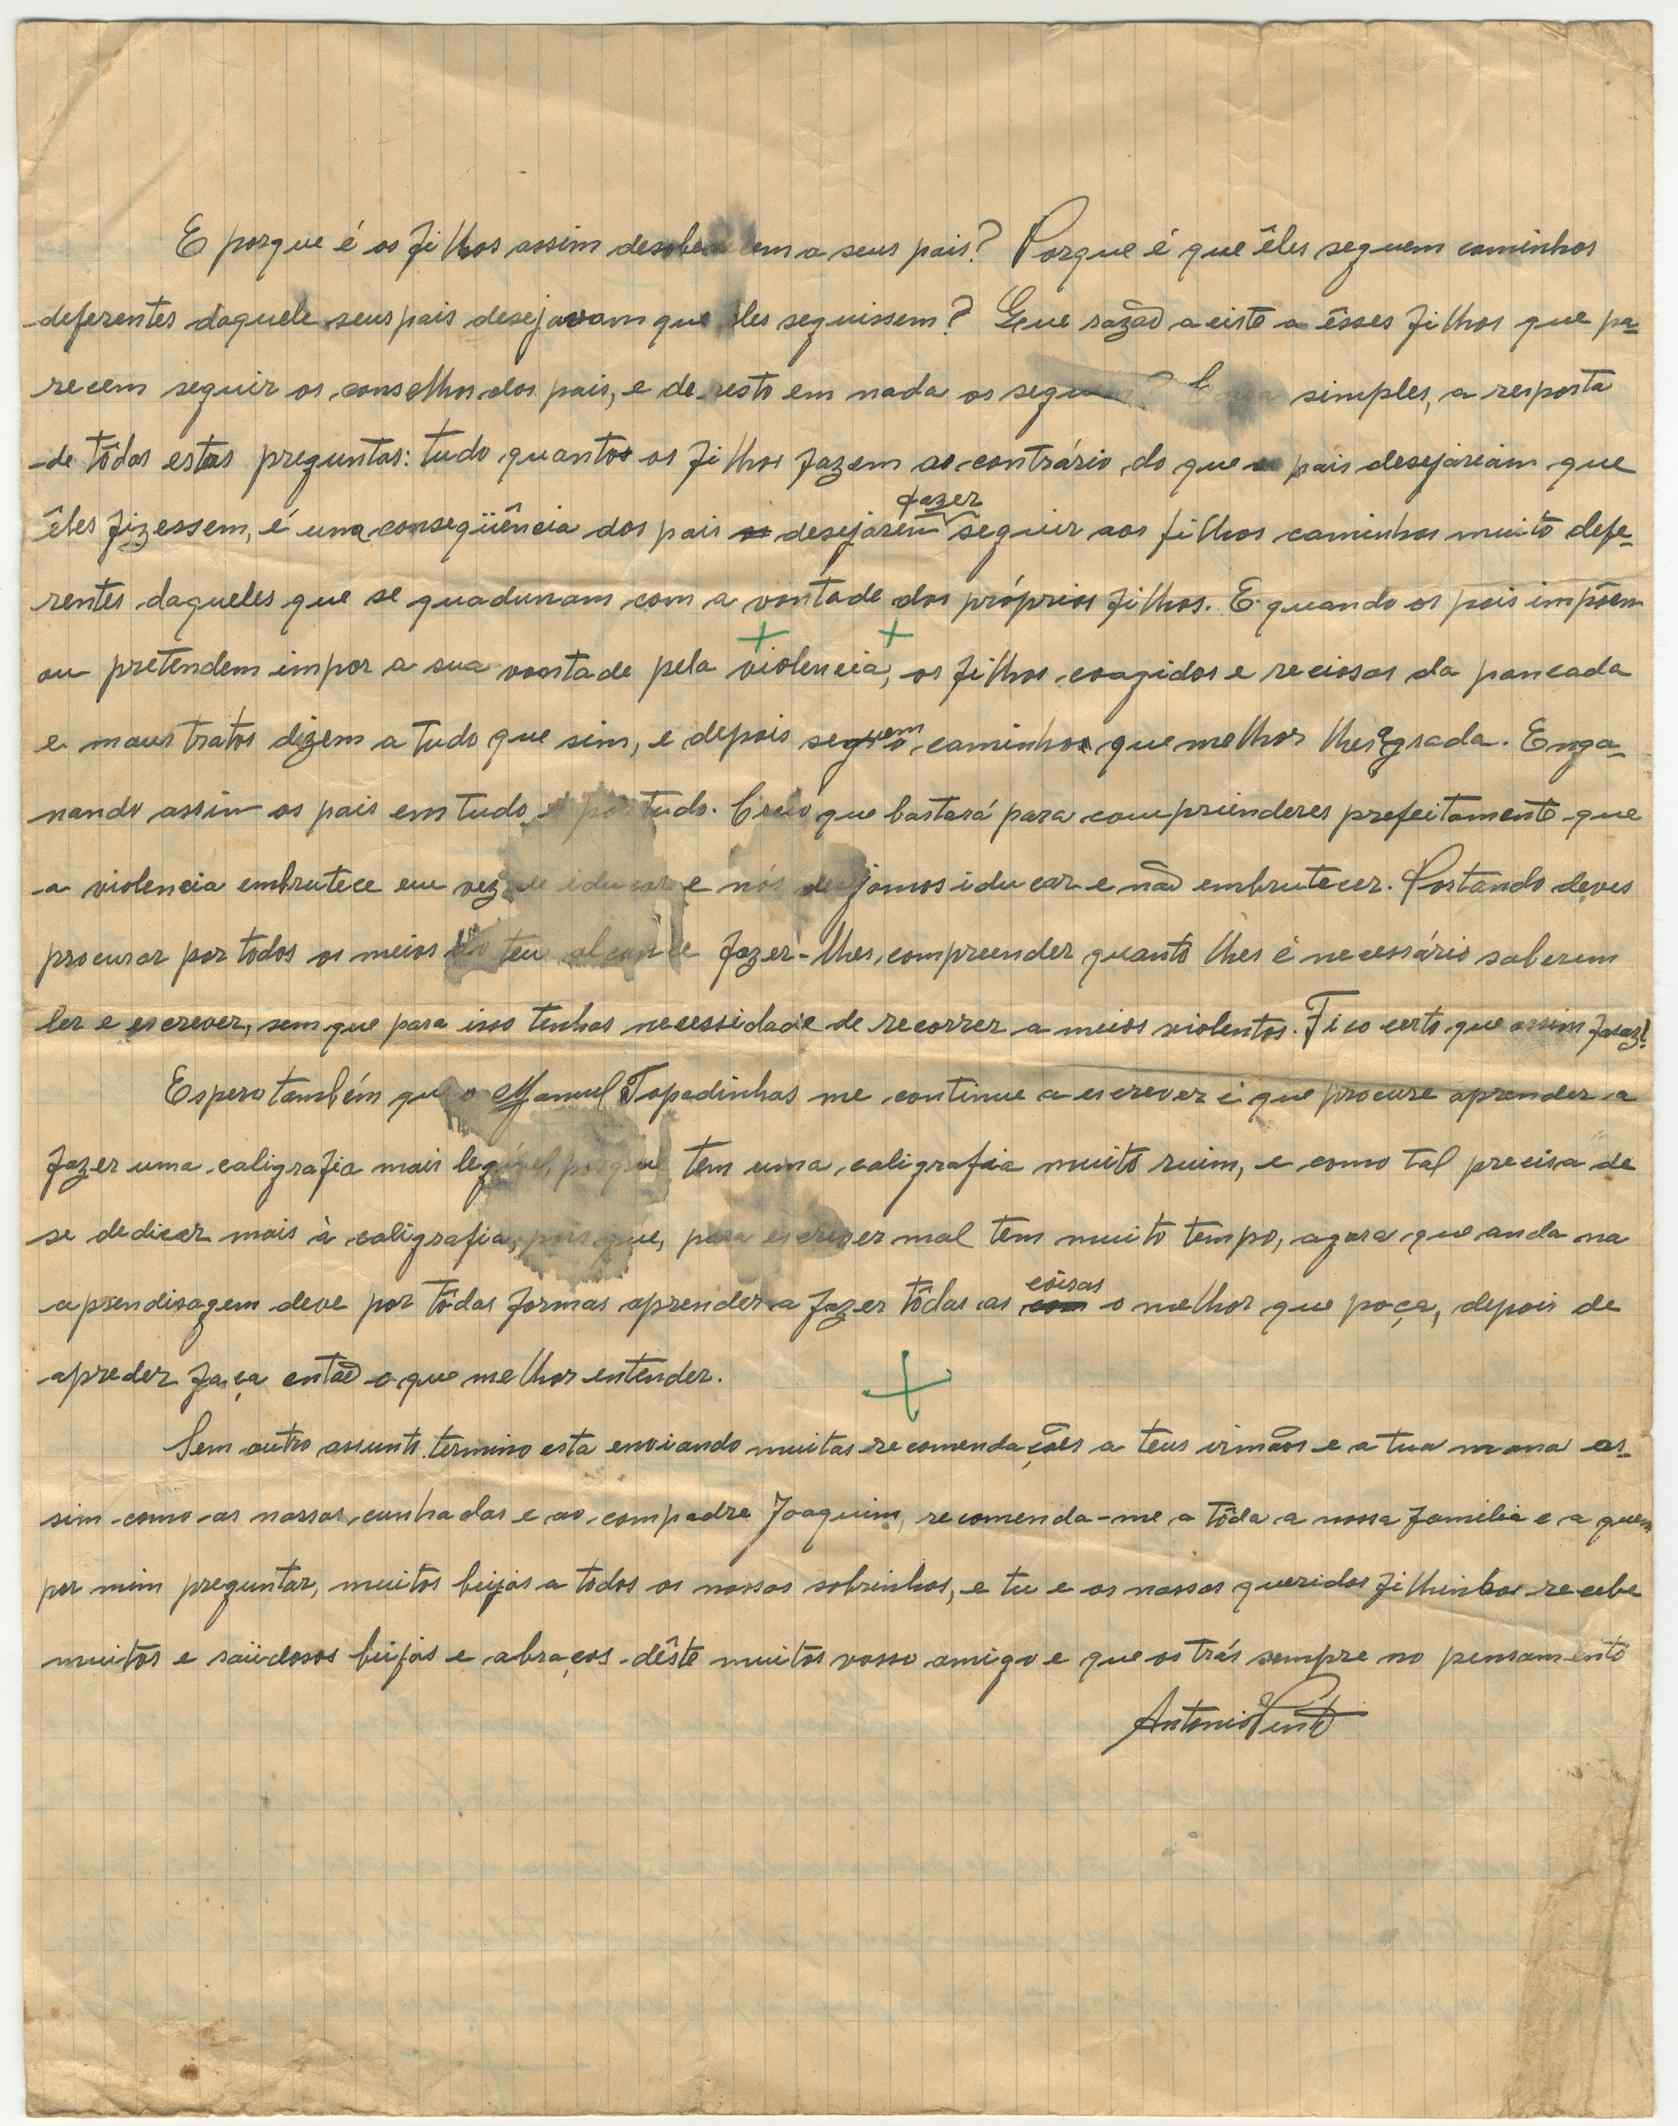 E porque é os filhos assim desobedecem a seus pais? Porque é que êles seguem caminhos
deferentes daquele seus pais desejavam que êles seguissem? Que razão aciste a êsses filhos que pa-
recem seguir os conselhos dos pais, e de resto em nada os seguem? simples, a resposta
de tôdas estas preguntas: tudo quanto os filhos fazem ao contrário do que os pais desejariam que
êles fizessem, é uma conseqüência dos pais desejarem fazer seguir aos filhos caminhos muito defe-
rentes daqueles que se quadunam com a vontade dos próprios filhos. E quando os pais impõem
ou pretendem impor a sua vontade pela violencia, os filhos coagidos e reciosos da pancada
e maus tratos dizem a tudo que sim, e depois seguem o caminho que melhor lhes agrada. Enga-
nando assim os pais em tudo e por tudo. Creio que bastará para compriênderes prefeitamente que
a violencia embrutece em vez de iducar e nós desejamos iducar e não embrutecer. Portando deves
procurar por todos os meios ao teu alcance fazer-lhes compreender quanto lhes é necessário saberem
ler e escrever, sem que para isso tenhas necessidade de recorrer a meios violentos. Fico certo que assim faraz!
Espero também que o Manuel Tapadinhas me continue a escrever e que procure aprender a
fazer uma caligrafia mais legível, porque tem uma caligrafia muito ruim, e como tal precisa de
se dedicar mais à caligrafia, pois que, para escrever mal tem muito tempo, agora que anda na
aprendisagem deve por tôdas formas aprender a fazer tôdas as côisas o melhor que poça, depois de
apreder faça então o que melhor entender.
Sem outro assunto termino esta enviando muitas recomendações a teus irmãos e a tua mana as-
sim como as nossas cunhadas e ao compadre Joaquim, recomenda-me a tôda a nossa familia e a quem
por mim preguntar, muitos beijos a todos os nossos sobrinhos, e tu e os nossos queridos filhinhos recebe
muitos e saüdosos beijos e abraços dêste muitos vosso amigo e que os trás sempre no pensamento
Antonio Pinto